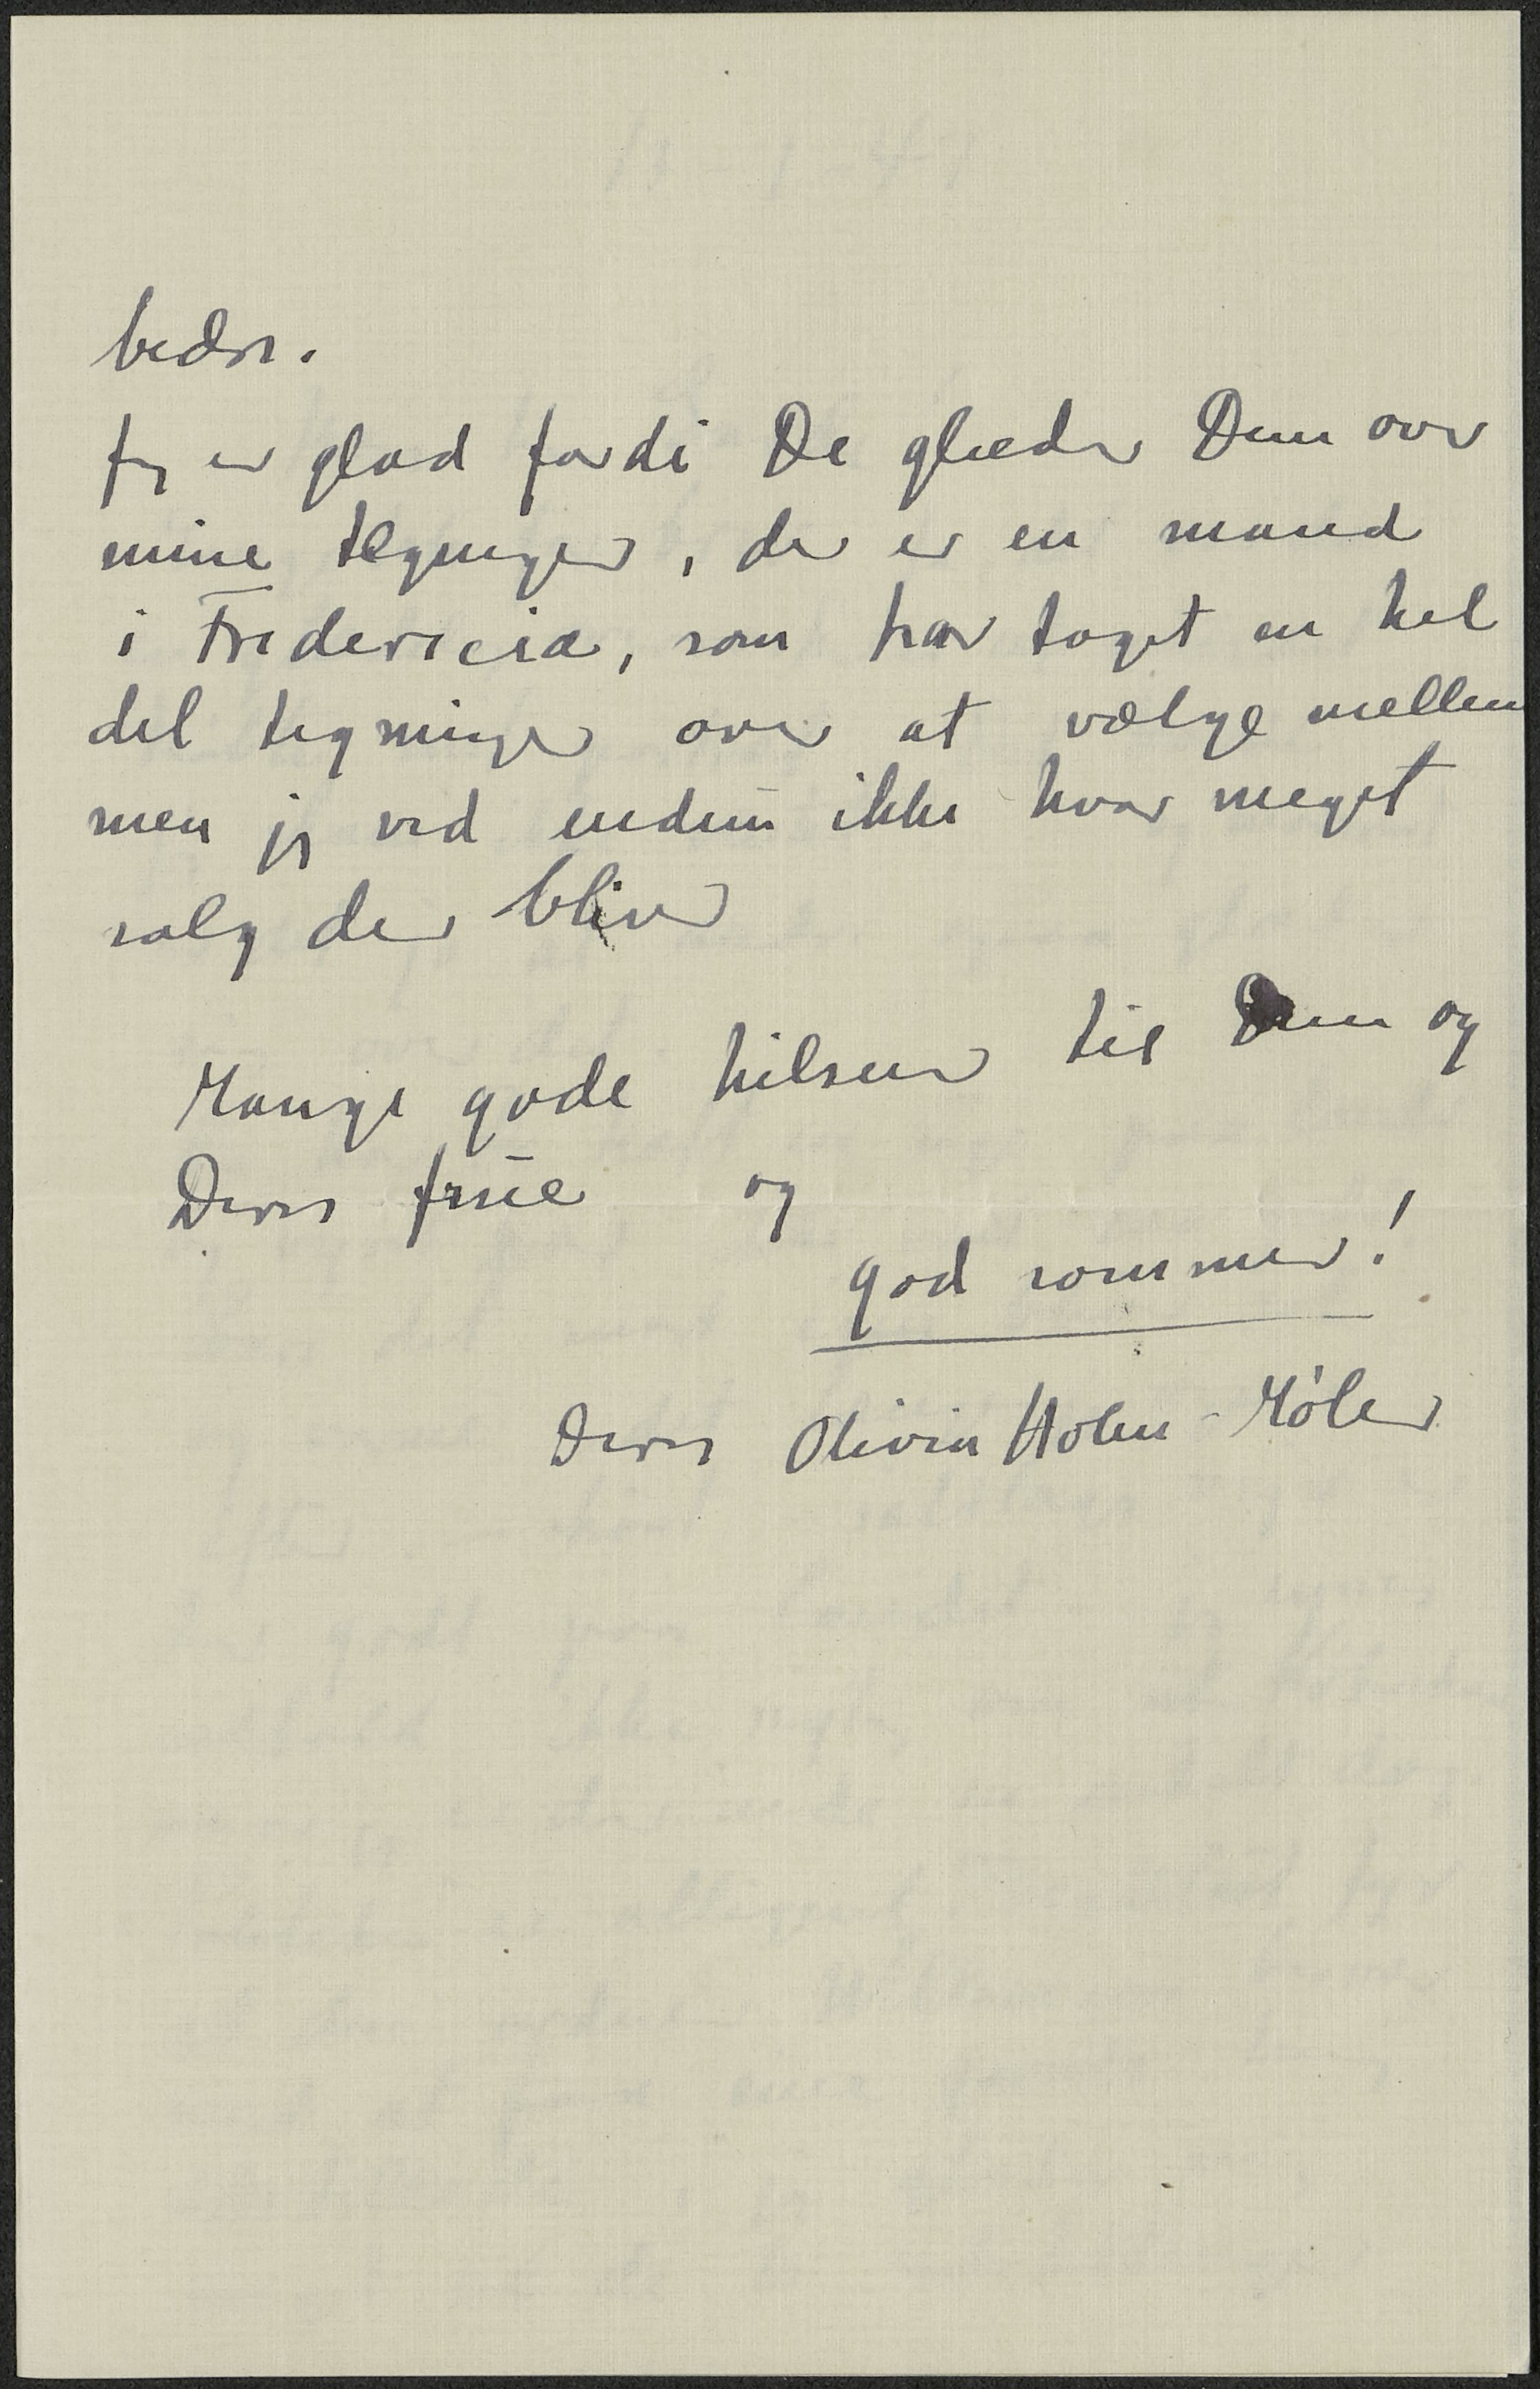 bedre.
Jeg er glad fordi De glæder Dem over
mine tegninger, der er en mand
i Fredericia, som har taget en hel
del tegninger over at vælge mellem
men jeg ved endnu ikke hvor meget
salg der bliver
Mange gode hilsener til Dem og
Deres frue og
god sommer!
Deres Olivia Holm-Møller